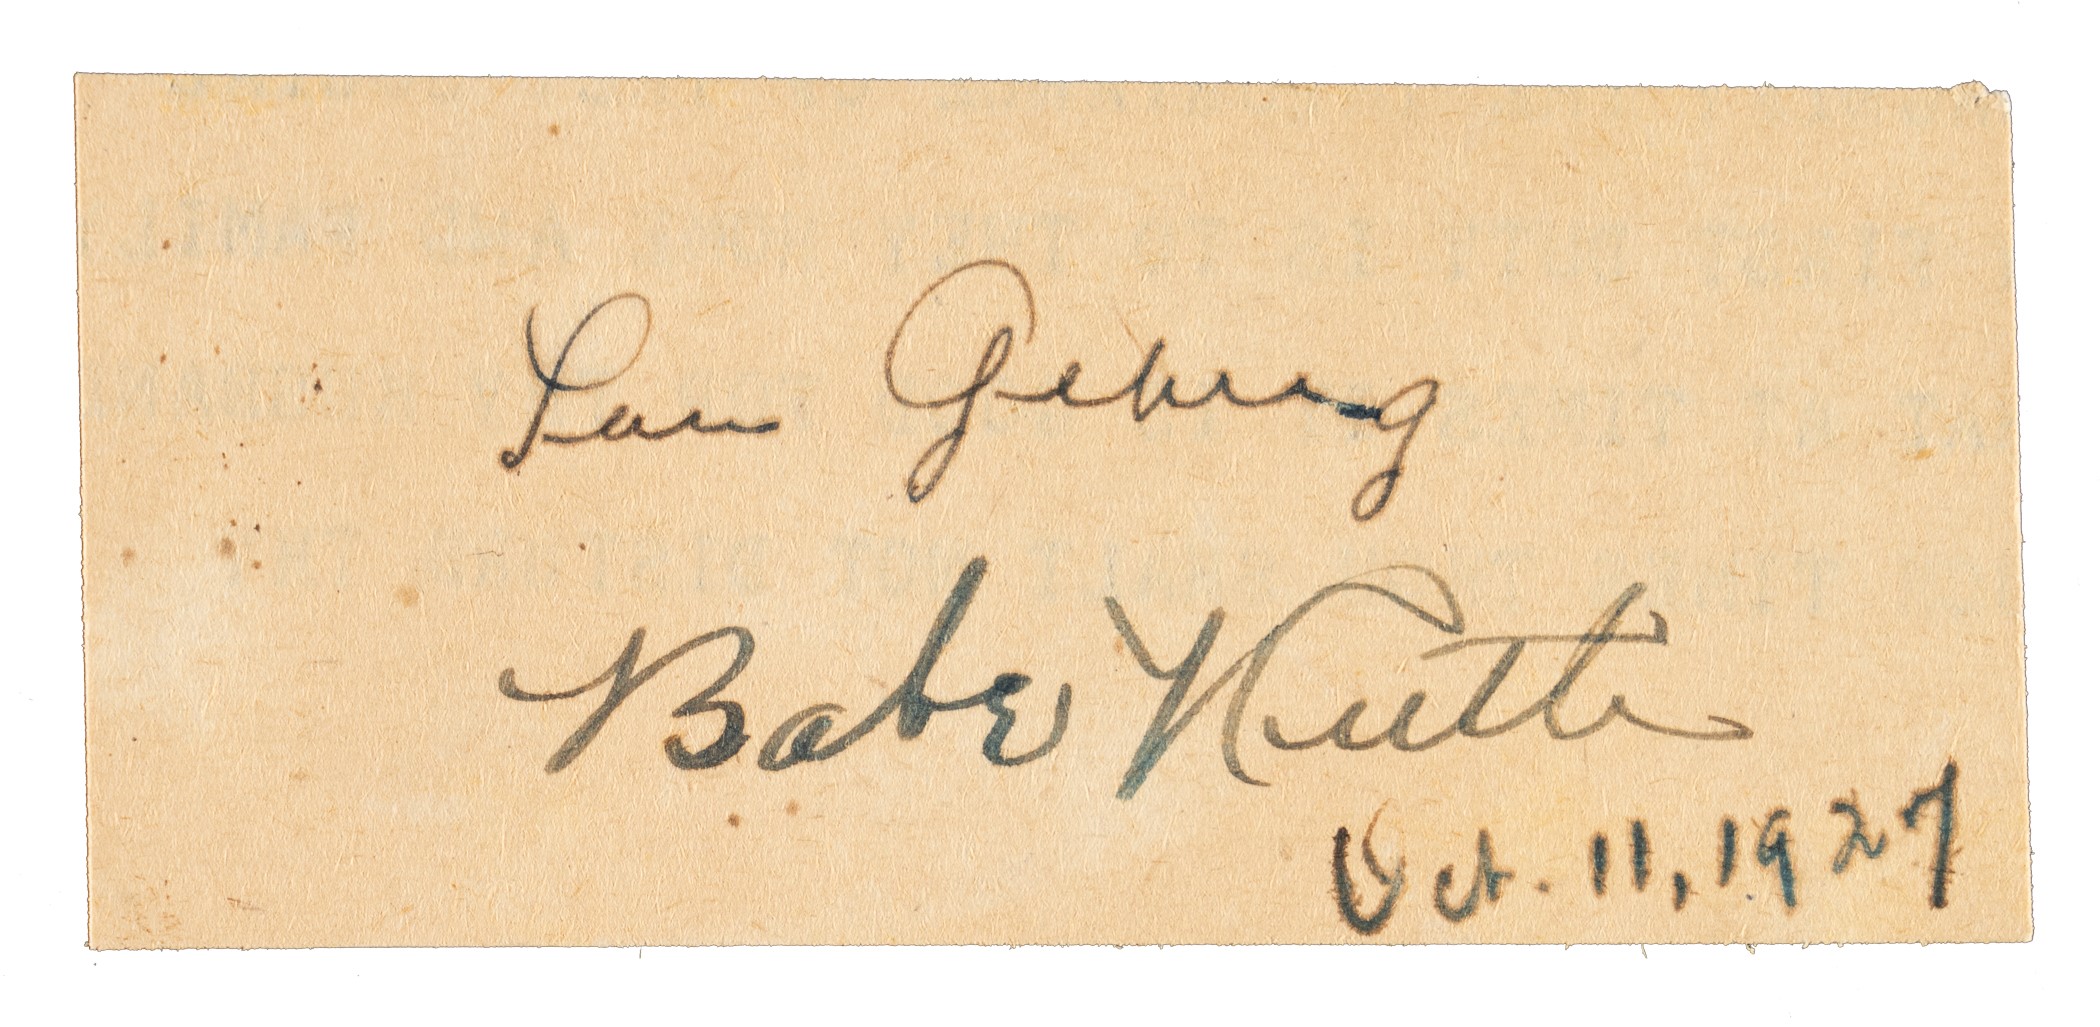 Lou Gehrig
Babe Ruth
Oct. 11, 1927